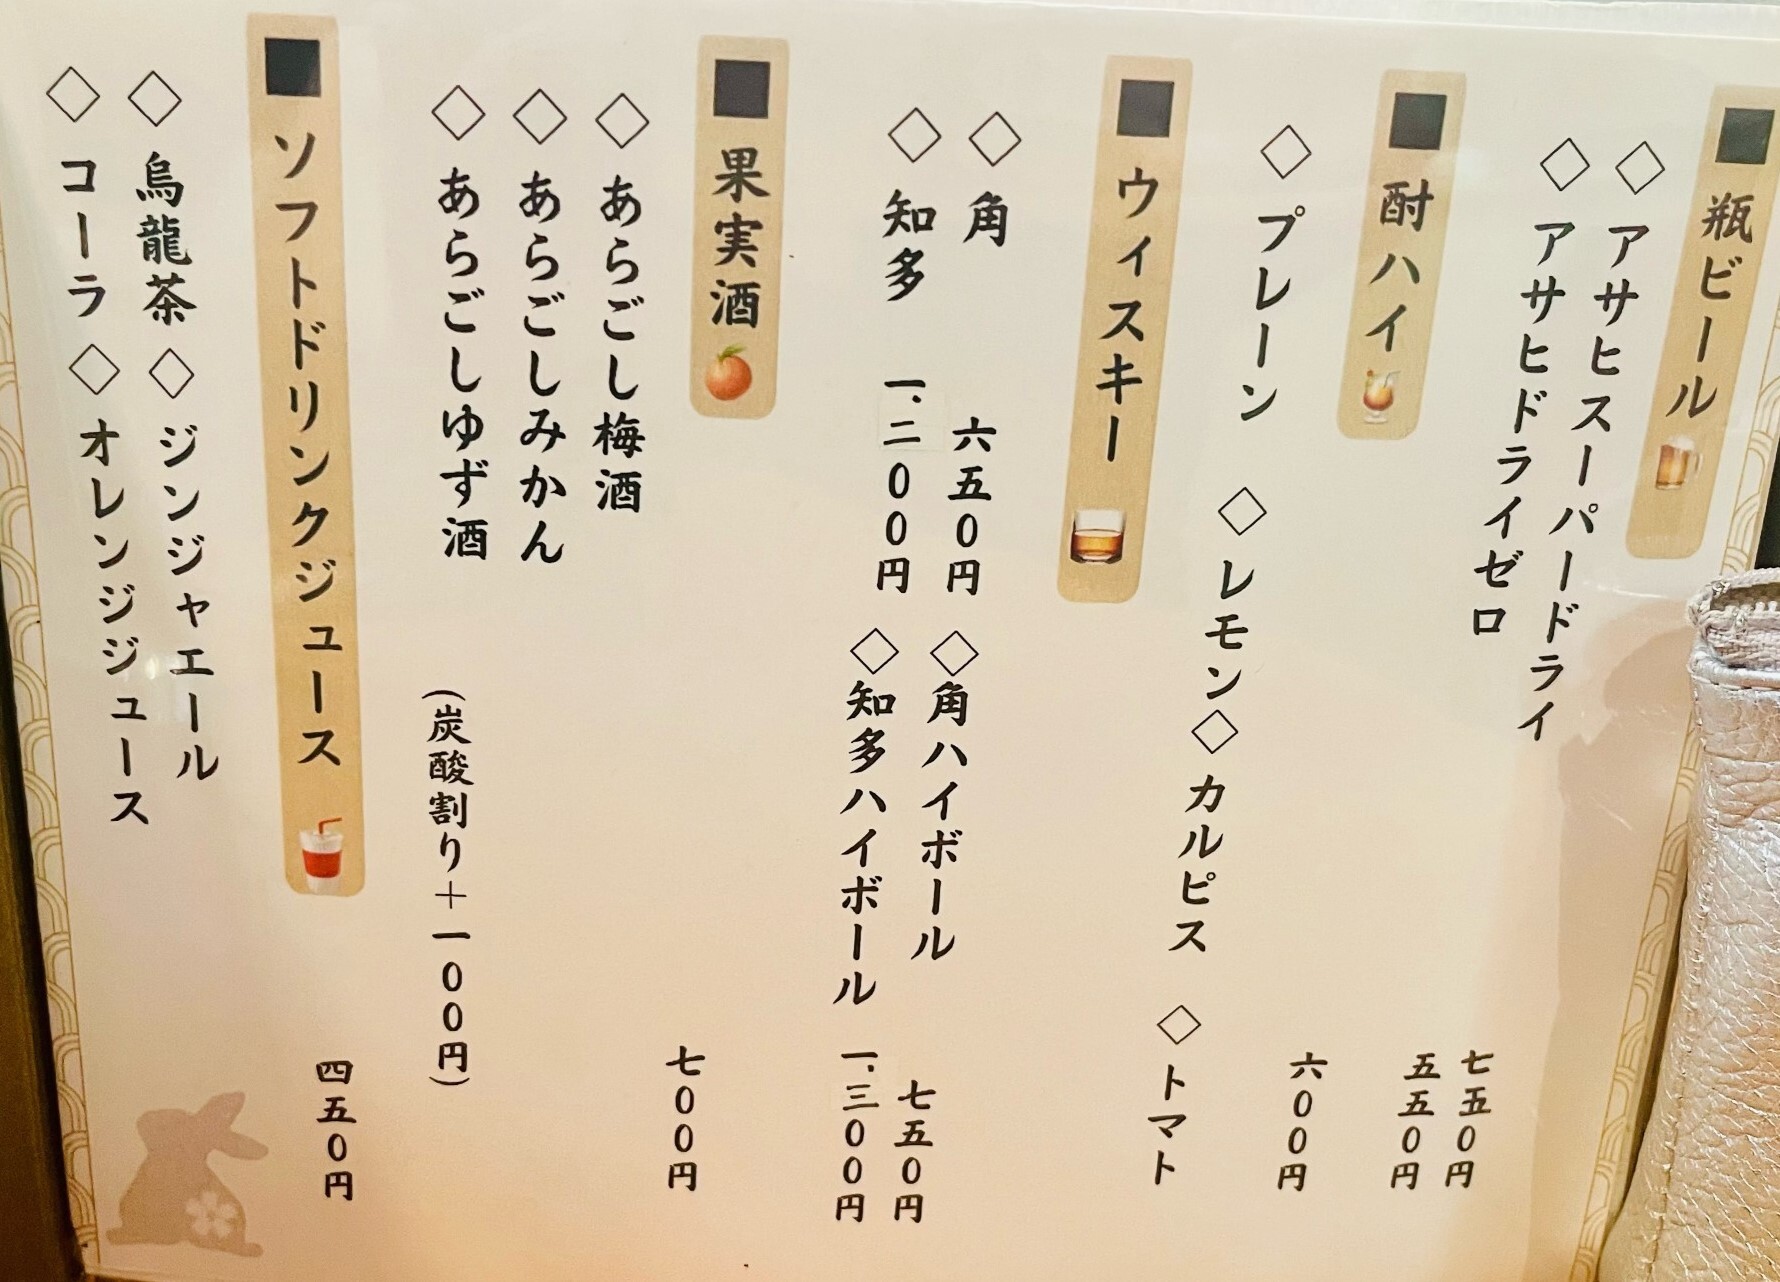 ■瓶ビール
◇アサヒスーパードライ 七五〇円
◇アサヒドライゼロ 五五〇円
■酎ハイ 六〇〇円
◇プレーン ◇レモン ◇カルピス ◇トマト
■ウィスキー
◇角 六五〇円 ◇角ハイボール 七五〇円
◇知多 一.二〇〇円 ◇知多ハイボール 一.三〇〇円
■果実酒 七〇〇円
◇あらごし梅酒
◇あらごしみかん
◇あらごしゆず酒 (炭酸割り+一〇〇円)
■ソフトドリンクジュース 四五〇円
◇烏龍茶 ◇ジンジャエール
◇コーラ ◇オレンジジュース